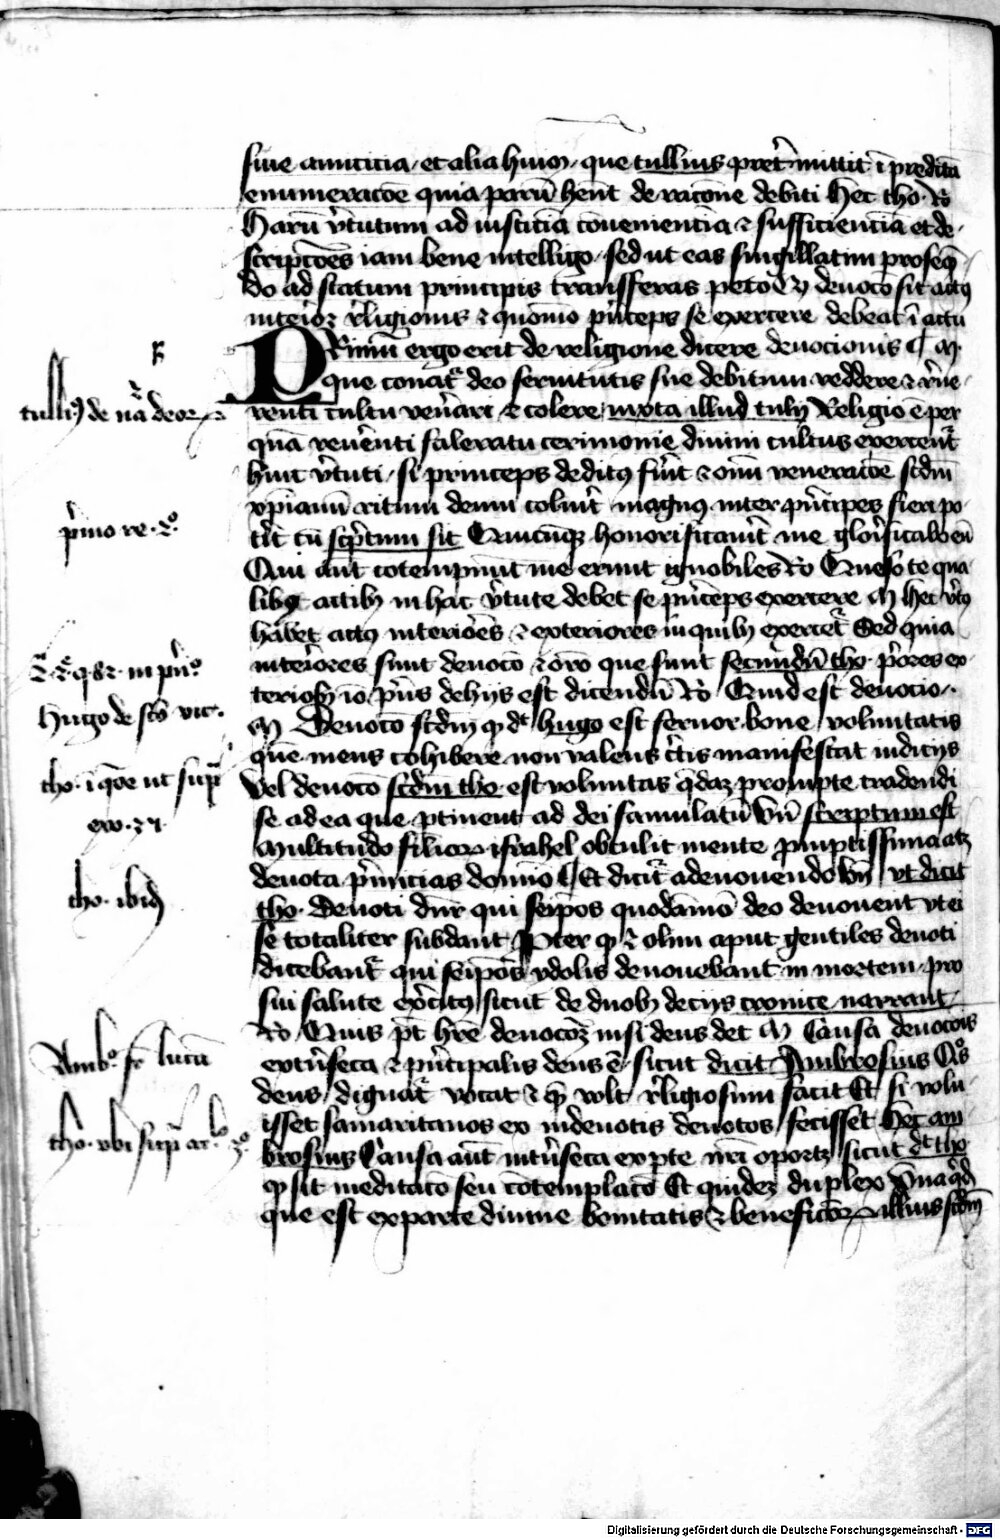 siue amicicia et alia huiꝰ que tullius pret̾mittit ī predicta
enumeracōe quia parū hent de racione debiti Hec tho. Ro
Harū v̾tutum ad iusticiā conuenienciā ⁊ sufficienciā et de
scripcōes iam bene intelligo sed ut eas singillatim proseq̄n
do ad statum principis transferas peto ē ꝙ deuocō sit actꝰ
interior religionis ⁊ quomō p̾nceps se exercere debeat ī actu
PRimū ergo erit de religione dicere deuocionis M
que conat̾ deo seruitutis sue debitum reddere ⁊ reue
renti cultu ven̾ari ⁊ colere iuxta illud tulij Religio ē per
quā reuerenti famulatu cerimonie diuini cultus exercent̾
huic v̾tuti si princeps deditꝰ fu̾it ⁊ om̄i veneracōe scdm̄
xp̄ianū ritum deum colu̾it magnꝰ inter p̾ncipes fieri po
t̾it cū scp̾tum sit Quicūqꝫ honorificau̾it me glorificabo eū
Qui aut cōtempnūt me erunt ignobiles Ro Queso te qua
libꝫ actibꝫ in hac v̾tute debet se p̾nceps exercere M Hec v̾tꝰ
habet actꝰ interiores ⁊ exteriores in quibꝫ exercet̾ Sed quia
interiores sunt deuocō ⁊ orō que sunt secundū tho. p̾ores ex
teriobꝫ iō p̾us de hijs est dicendū Ro Quid est deuocio
M Deuocō scdm̄ ꝙ dt̄ hugo est feruor bone voluntatis
quē mens cohibere non valens c̾tis manifestat iudicijs
vel deuocō scdm̄ tho. est voluntas q̄daꝫ prompte tradendi
se ad ea que ꝑtinent ad dei famulatū Vn̄ scriptum est
Multitudo filiorꝫ israhel obtulit mente promptissima atqꝫ
deuota p̾micias domino Et dicit̾ a deuouendo vt dicit
tho. Deuoti dn̄r qui seipos quodāmō deo deuouent vt ei
se totaliter subdant Propter ꝙ ⁊ olim aput gentiles deuoti
dicebant̾ qui seipōs ydolis deuouebant in mortem pro
sui salute exercitꝰ sicut de duobꝫ decijs cronice narrant
Ro Quis pt̄ hr̄e deuocōꝫ nisi deus det M Causa deuocōis
extrinseca ⁊ p̾ncipalis deus ē sicut dicit Ambrosius Qos
deus dignat̾ vocat ⁊ quē vult religiosum facit Et si volu
isset samaritanos ex indeuotis deuotos fecisset Hec am
brosius Causa aut intrinseca ex pte nr̄i oportꝫ sicut dt̄ tho
ꝙ sit meditacō seu cōtemplacō Et quideꝫ duplex Vna qd̄
que est ex parte diuine bonitatis ⁊ beneficiorꝫ illius scdm̄
R
tullius de nat̾a deorꝫ
p̾mo re. 2o
hugo de sco vic.
tho. ī q̄oe ut sup̾
exo. 35
tho. ibid
Ambo. sr̄ lucā
tho. vbi sup̾ ar. 3o
Digitalisierung gefördert durch die Deutsche Forschungsgemeinschaft - DFG